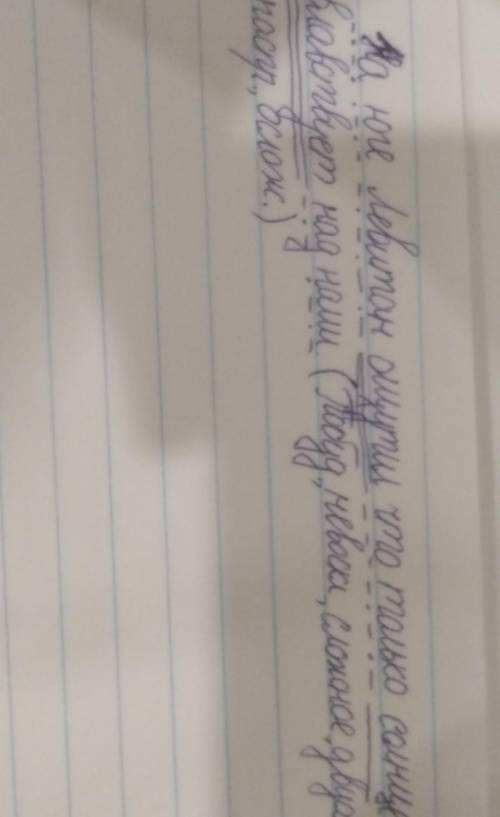 На юге Левитан ощутил что только солнце
властвует над нами (Побуд, невоскл, сложное, двух
распр, Услож.)